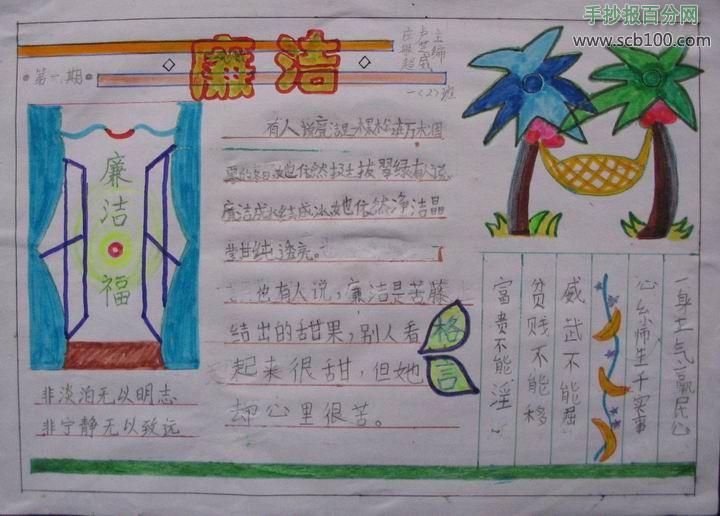 手抄报百分网
www.scb100.com
廉洁
第一期
主编
一〈2〉班
廉洁福
非淡泊无以明志
非宁静无以致远
有人说廉洁是一棵松 在万木凋
零的冬日 她也依然挺 拔翠绿有人说
廉洁成水结成冰她也依然净洁晶
莹甘纯 透亮。
也有人说,廉洁是苦藤
结出的甜果,别人看
起来很甜,但她
却心里很苦。
格言
一身正气赢民心
师生干实事
威武不能屈
贫贱不能移
富贵不能淫